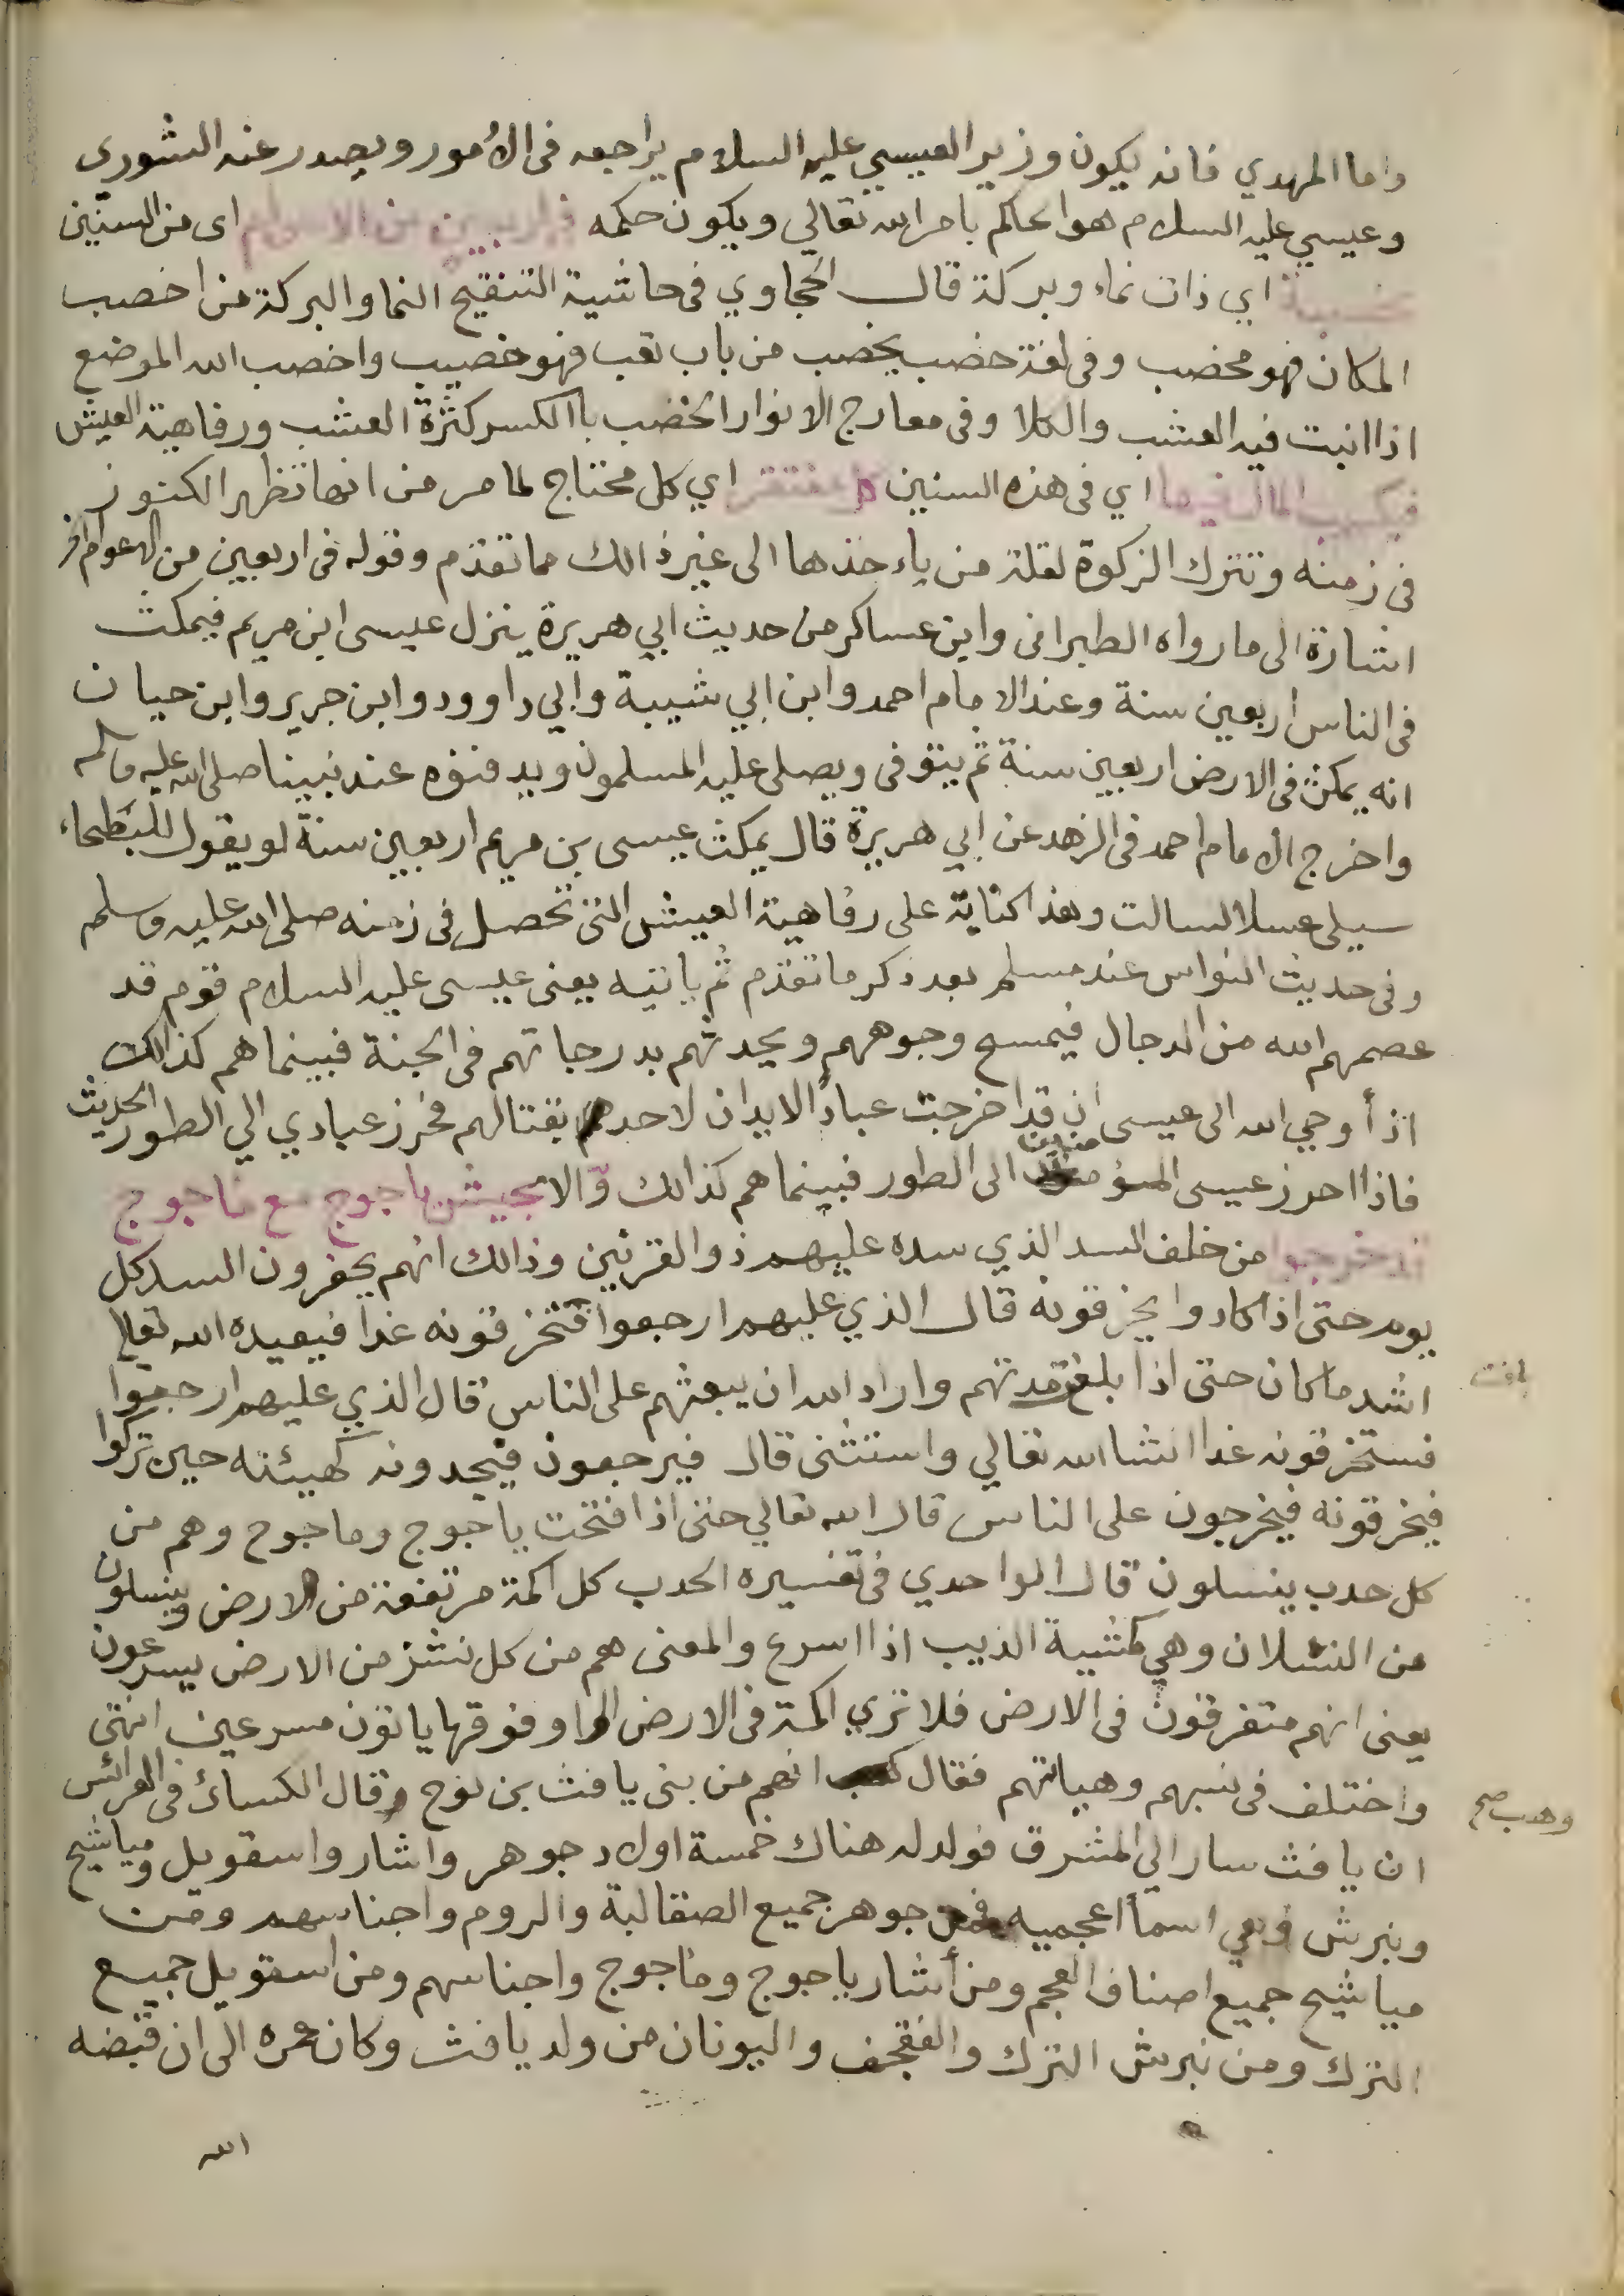 واما المهدي فانه يكون وزير العيسي عليه السلام يراجعه فى الأمور ويصدر عنه الشورى
وعيسي عليه السلام هو الحاكم بامر الله تعالي ويكون حكمه فى اربعين من الاعوام اى من السنين
اي ذات نماء وبركة قال الحجاوي فى حاشية التنقيح النما والبركة من اخصب
المكان فهو مخصب وفى لغة خصب يخصب من باب تعب فهو خصيب واخصب الله الموضع
اذا انبت فيه العشب والكلا وفى معارج الانوار الخصب باالكسر كثرة العشب ورفاهية العيش
فيكسب المال فيها اي فى هذه السنين مفتقر اي كل محتاج لما مر من انها تظهر الكنوز
فى زمنه وتترك الزكوة لقلة من ياءخذها الى غير ذالك مما تقدم وقوله فى اربعين من الاعوام
اشارة الى ما رواه الطبرانى وابن عساكر من حديث ابي هريرة ينزل عيسى ابن مريم فيمكث
فى الناس اربعين سنة وعند الامام احمد وابن ابي شيبة وابي داوود وابن جرير وابن حبان
انه يمكث فى الارض اربعين سنة ثم يتوفى ويصلى عليه المسلمون ويدفنوه عند نبينا صلى الله عليه وسلم
واخرج الامام احمد فى الزهد عن ابي هريرة قال يمكث عيسى بن مريم اربعين سنة لو يقول للبطحاء
سيلى عسلا لسالت وهذا كناية على رفاهية العيش التى تحصل فى زمنه صلى الله عليه وسلم
وفى حديث النواس عند مسلم بعد ذكر ما تقدم ثم ياتيه يعنى عيسى عليه السلام قوم قد
عصمهم الله من الدجال فيمسح وجوههم ويحدثهم بدرجاتهم فى الجنة فبينما هم كذالك
اذ أوحي الله الى عيسى ان قد اخرجت عبادا لا يدان لاحد بقتالهم فحرز عبادي الي الطور الحديث
فاذا احرز عيسى المؤمنين الى الطور فبينما هم كذالك والا بجيش ياجوج مع ماجوج
قد خرجوا من خلف السد الذي سده عليهم ذو القرنين وذالك انهم يحفرون السد كل
يوم حتى اذا كادوا يخرقونه قال الذي عليهم ارجعوا فتخرقونه غدا فيعيده الله تعالى
اشد ما كان حتى اذا بلغ مدتهم واراد الله ان يبعثهم على الناس قال الذي عليهم ارجعوا
بلغت
فستخرقونه غدا انشا الله تعالي واستثنى قال فيرجعون فيجدونه كهيئته حين تركوا
فيخرقونه فيخرجون على الناس قال الله تعالي حتى اذا فتحت ياجوج وماجوج وهم من
كل حدب ينسلون قال الواحدي فى تفسيره الحدب كل اكمة مرتفعة من الارض وينسلون
من النسلان وهي كمشية الذيب اذا اسرع والمعنى هم من كل نشز من الارض يسرعون
يعنى انهم متفرقون فى الارض فلا تري اكمة فى الارض الا وفوقها ياتون مسرعين انتهى
واختلف فى نسبهم وهياتهم فقال انهم من بنى يافث بن نوح وقال الكسائ فى العرائس
وهب صح
ان يافث سار الي المشرق فولد له هناك خمسة اولاد جوهر واشار واسقويل ومياشيح
ونبرش وهي اسمأ اعجميه فمن جوهر جميع الصقالبة والروم واجناسهم ومن
مياشيح جميع اصناف العجم ومن أشار ياجوج وماجوج واجناسهم ومن اسقويل جميع
الترك ومن نبرش الترك والقفجف واليونان من ولد يافث وكان عمره الى ان قبضه
الله